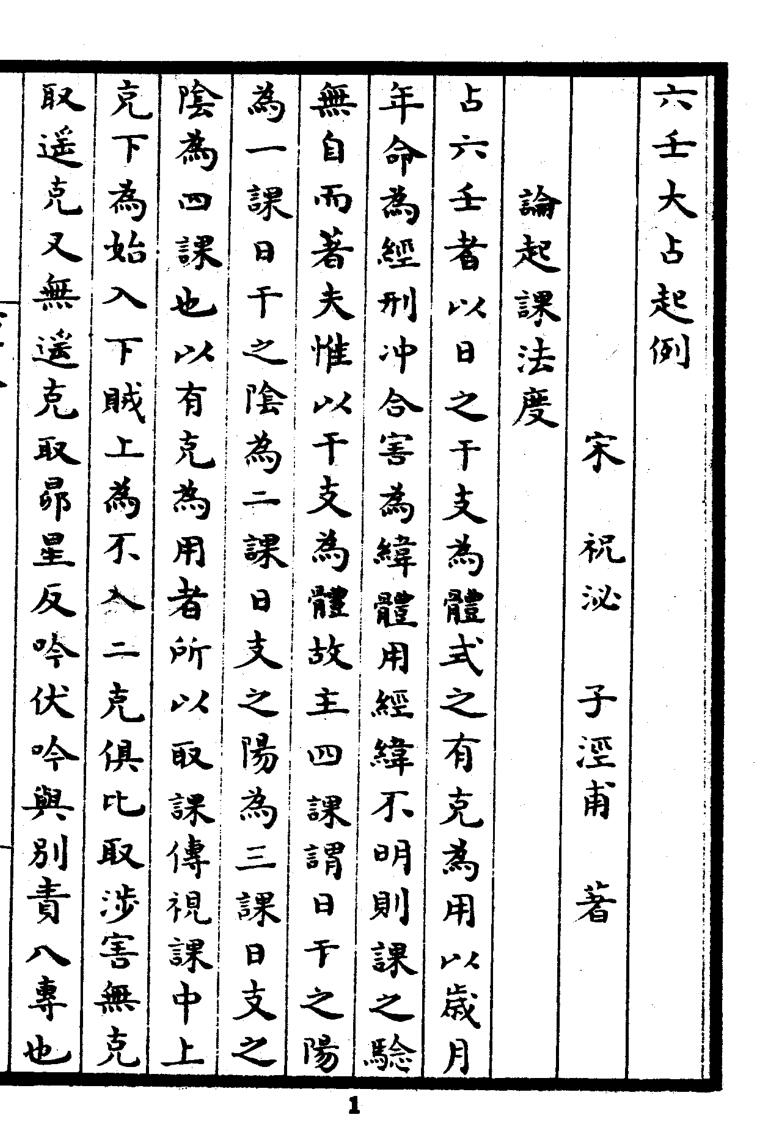 六壬大占起例
宋 祝泌 子涇甫 著
論起課法度
占六壬者以日之干支為體式之有克為用以歲月
年命為經刑冲合害為緯體用經緯不明則課之驗
無自而著夫惟以干支為體故主四課謂日干之陽
為一課日干之陰為二課日支之陽為三課日支之
陰為四課也以有克為用者所以取課傳視課中上
克下為始入下賊上為不入二克俱比取涉害無克
取遥克又無遥克取昴星反吟伏吟與别責八專也
1